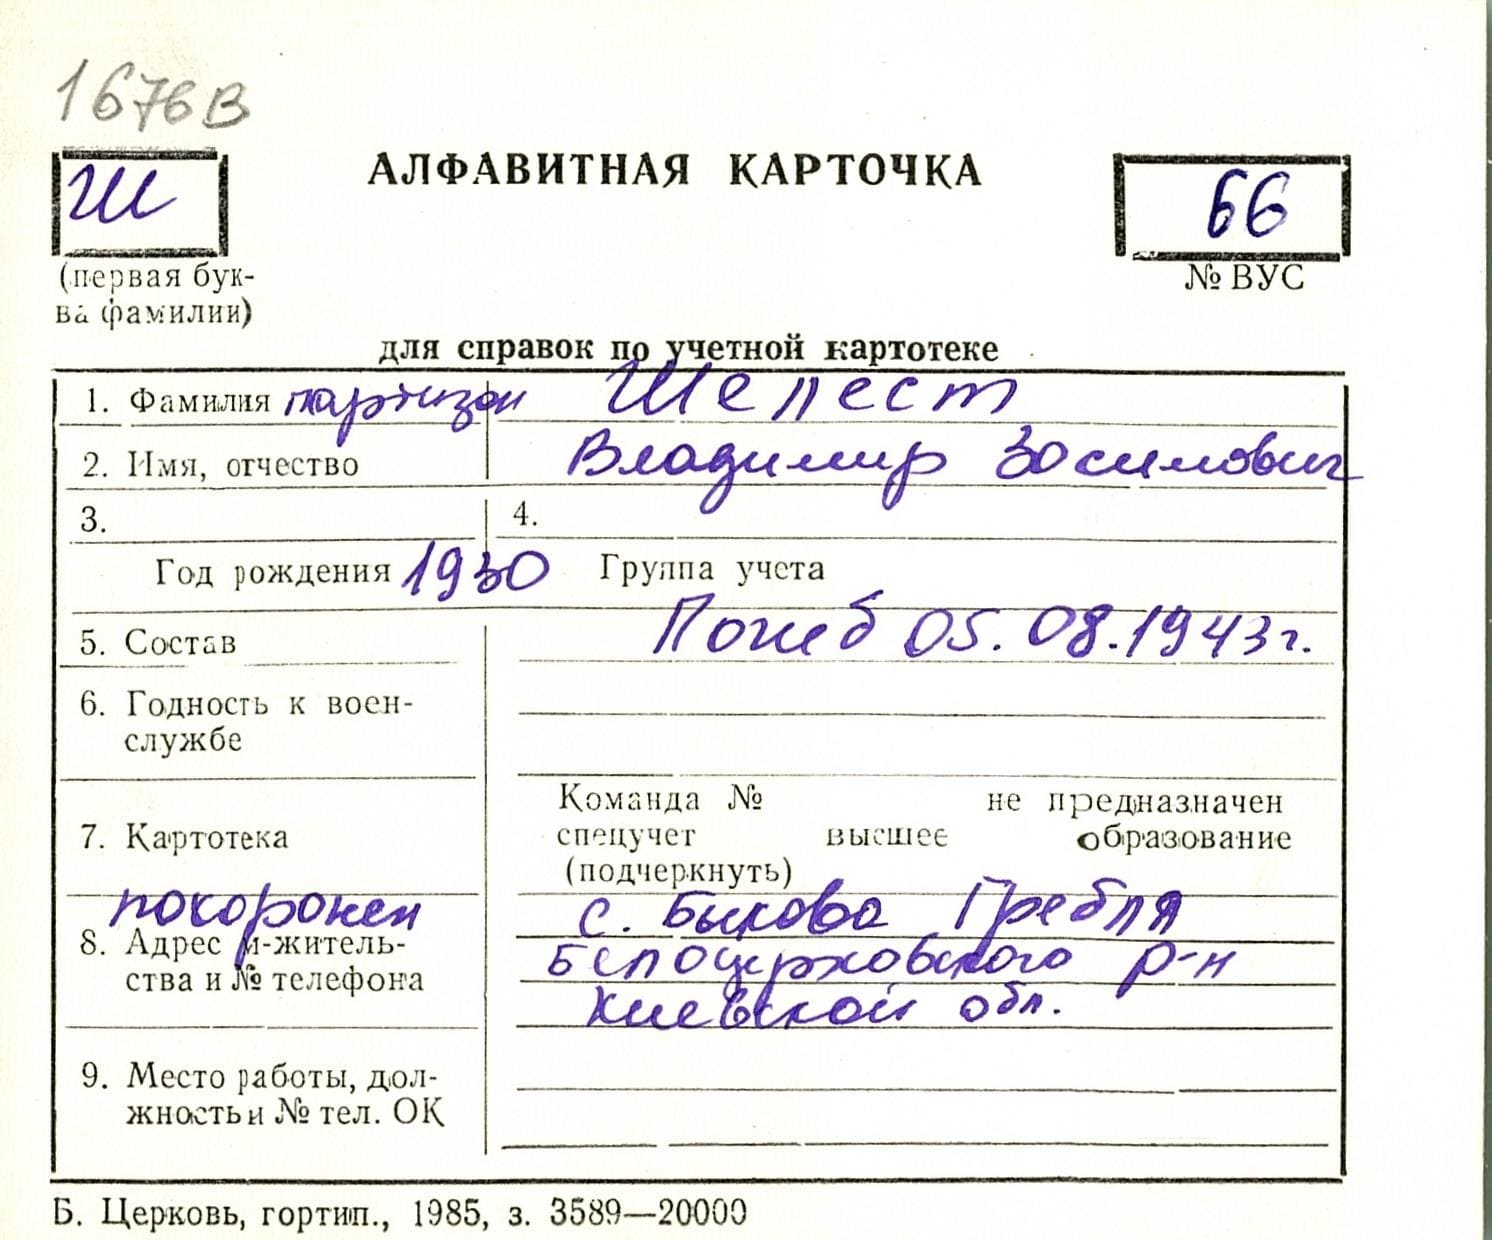 1676В
Ш
АЛФАВИТНАЯ КАРТОЧКА
66
(первая бук-
ва фамилии)
№ ВУС
для справок по учетной картотеке
1. Фамилия партизан Шелест
2. Имя, отчество Владимир Зосимович
3. 4.
Год рождения 1930 Группа учета
5. Состав Погиб 05.08.1943г.
6. Годность к воен-
службе
Команда № не предназначен
7. Картотека спецучет высшее образование
(подчеркнуть)
похоронен с. Быкова Гребля
8. Адрес м-житель- Белоцерковского р-н
ства и № телефона Киевской обл.
9. Место работы, дол-
жность и № тел. ОК
Б. Церковь, гортип., 1985, з. 3589—20000